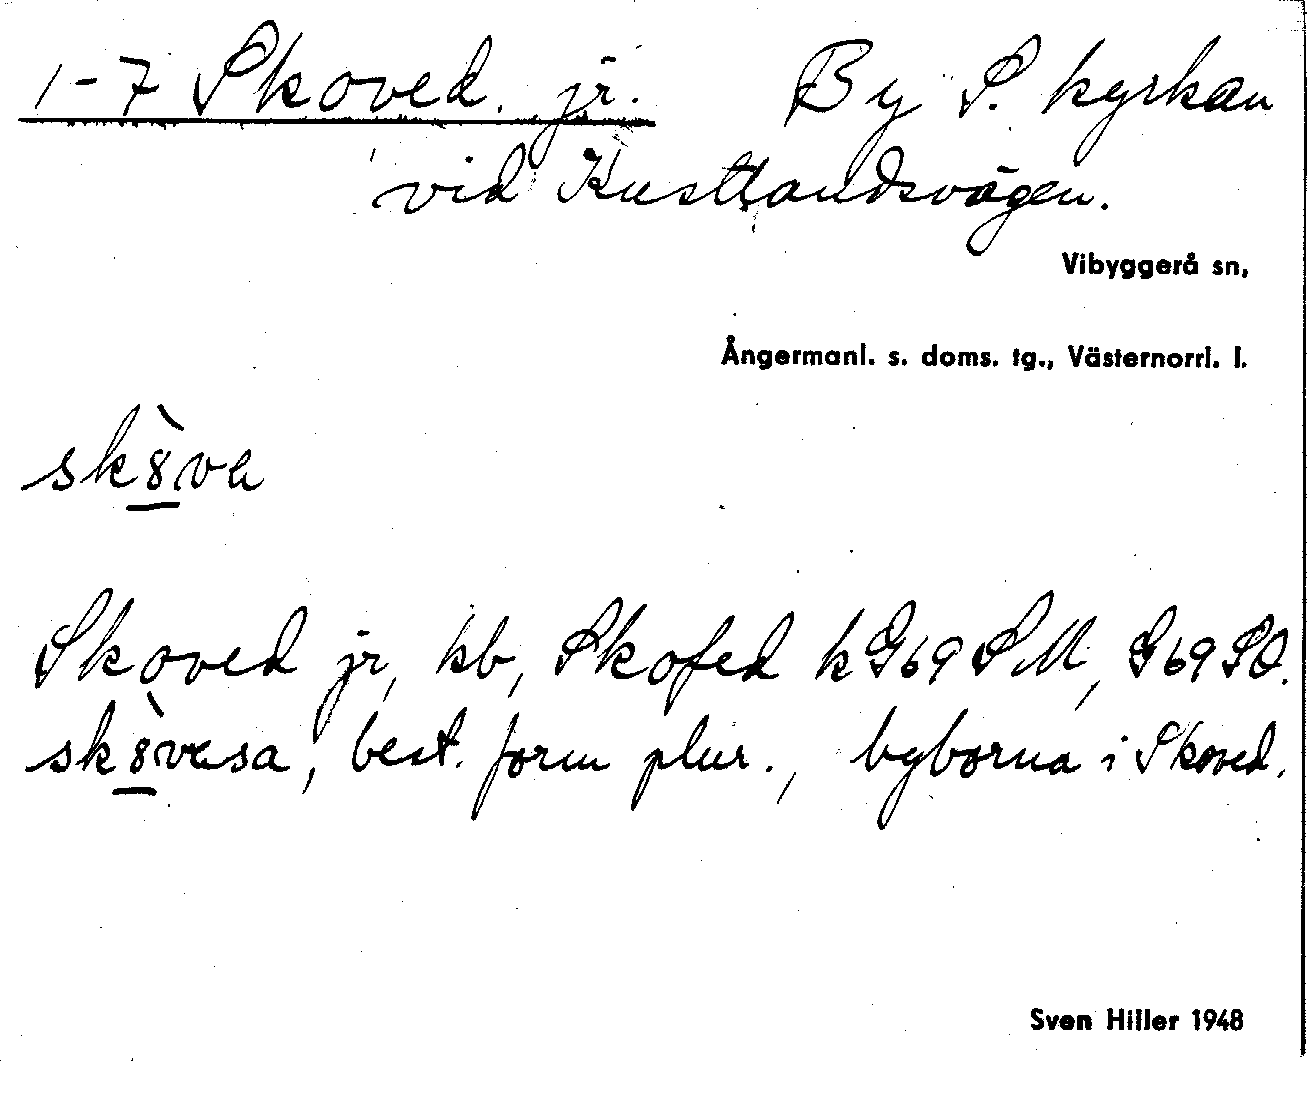 1-7 Skoved. jr. By S. kyrkan
vid Kustlandsvägen.
Vibyggerå sn,
Ångermanl. s. doms. tg., Västernorrl. l.
sk8̀va
Skoved jr, kb, Skofed k G69 SM, G69 SO.
sk8̀vasa, best. form plur., byborna i Skoved.
Sven Hiller 1948